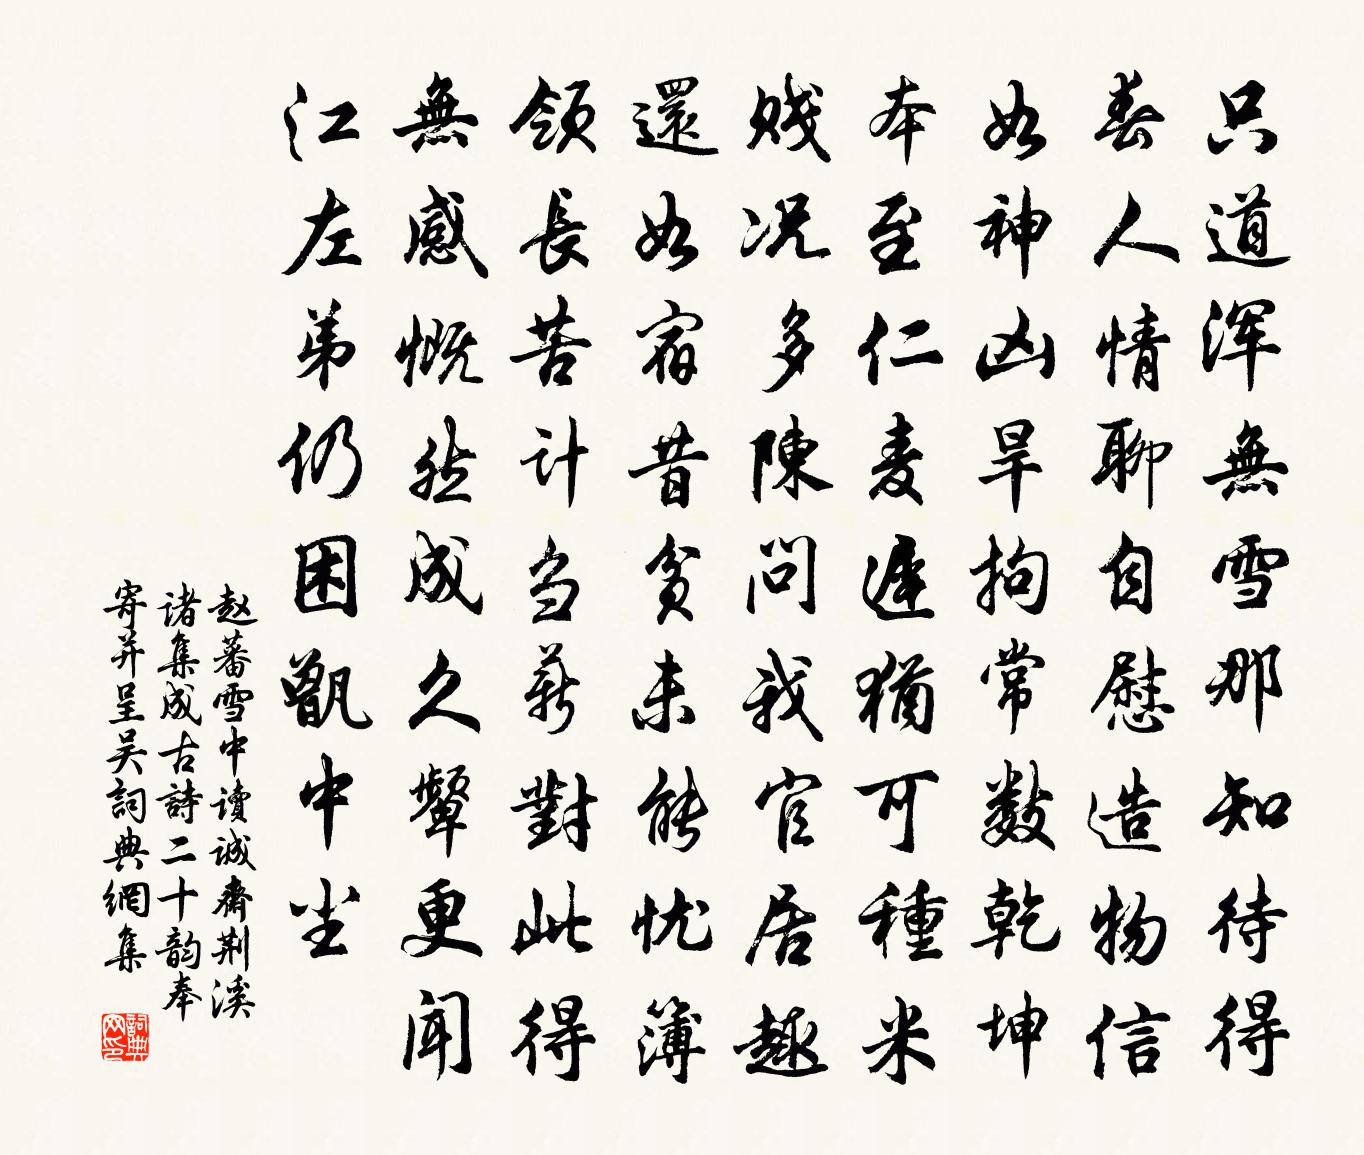 只道浑無雪那知待得
春人情聊自慰造物信
如神凶旱拘常数乾坤
本至仁麦遲猶可種米
贱况多陳問我官居趣
還如宿昔貧未能忧簿
領長苦计刍薪對此得
無感慨然成久顰更闻
江左弟仍困甑中尘
赵蕃雪中读诚齋荆溪
诸集成古詩二十韵奉
寄并呈吴詞典網集
詞典网印